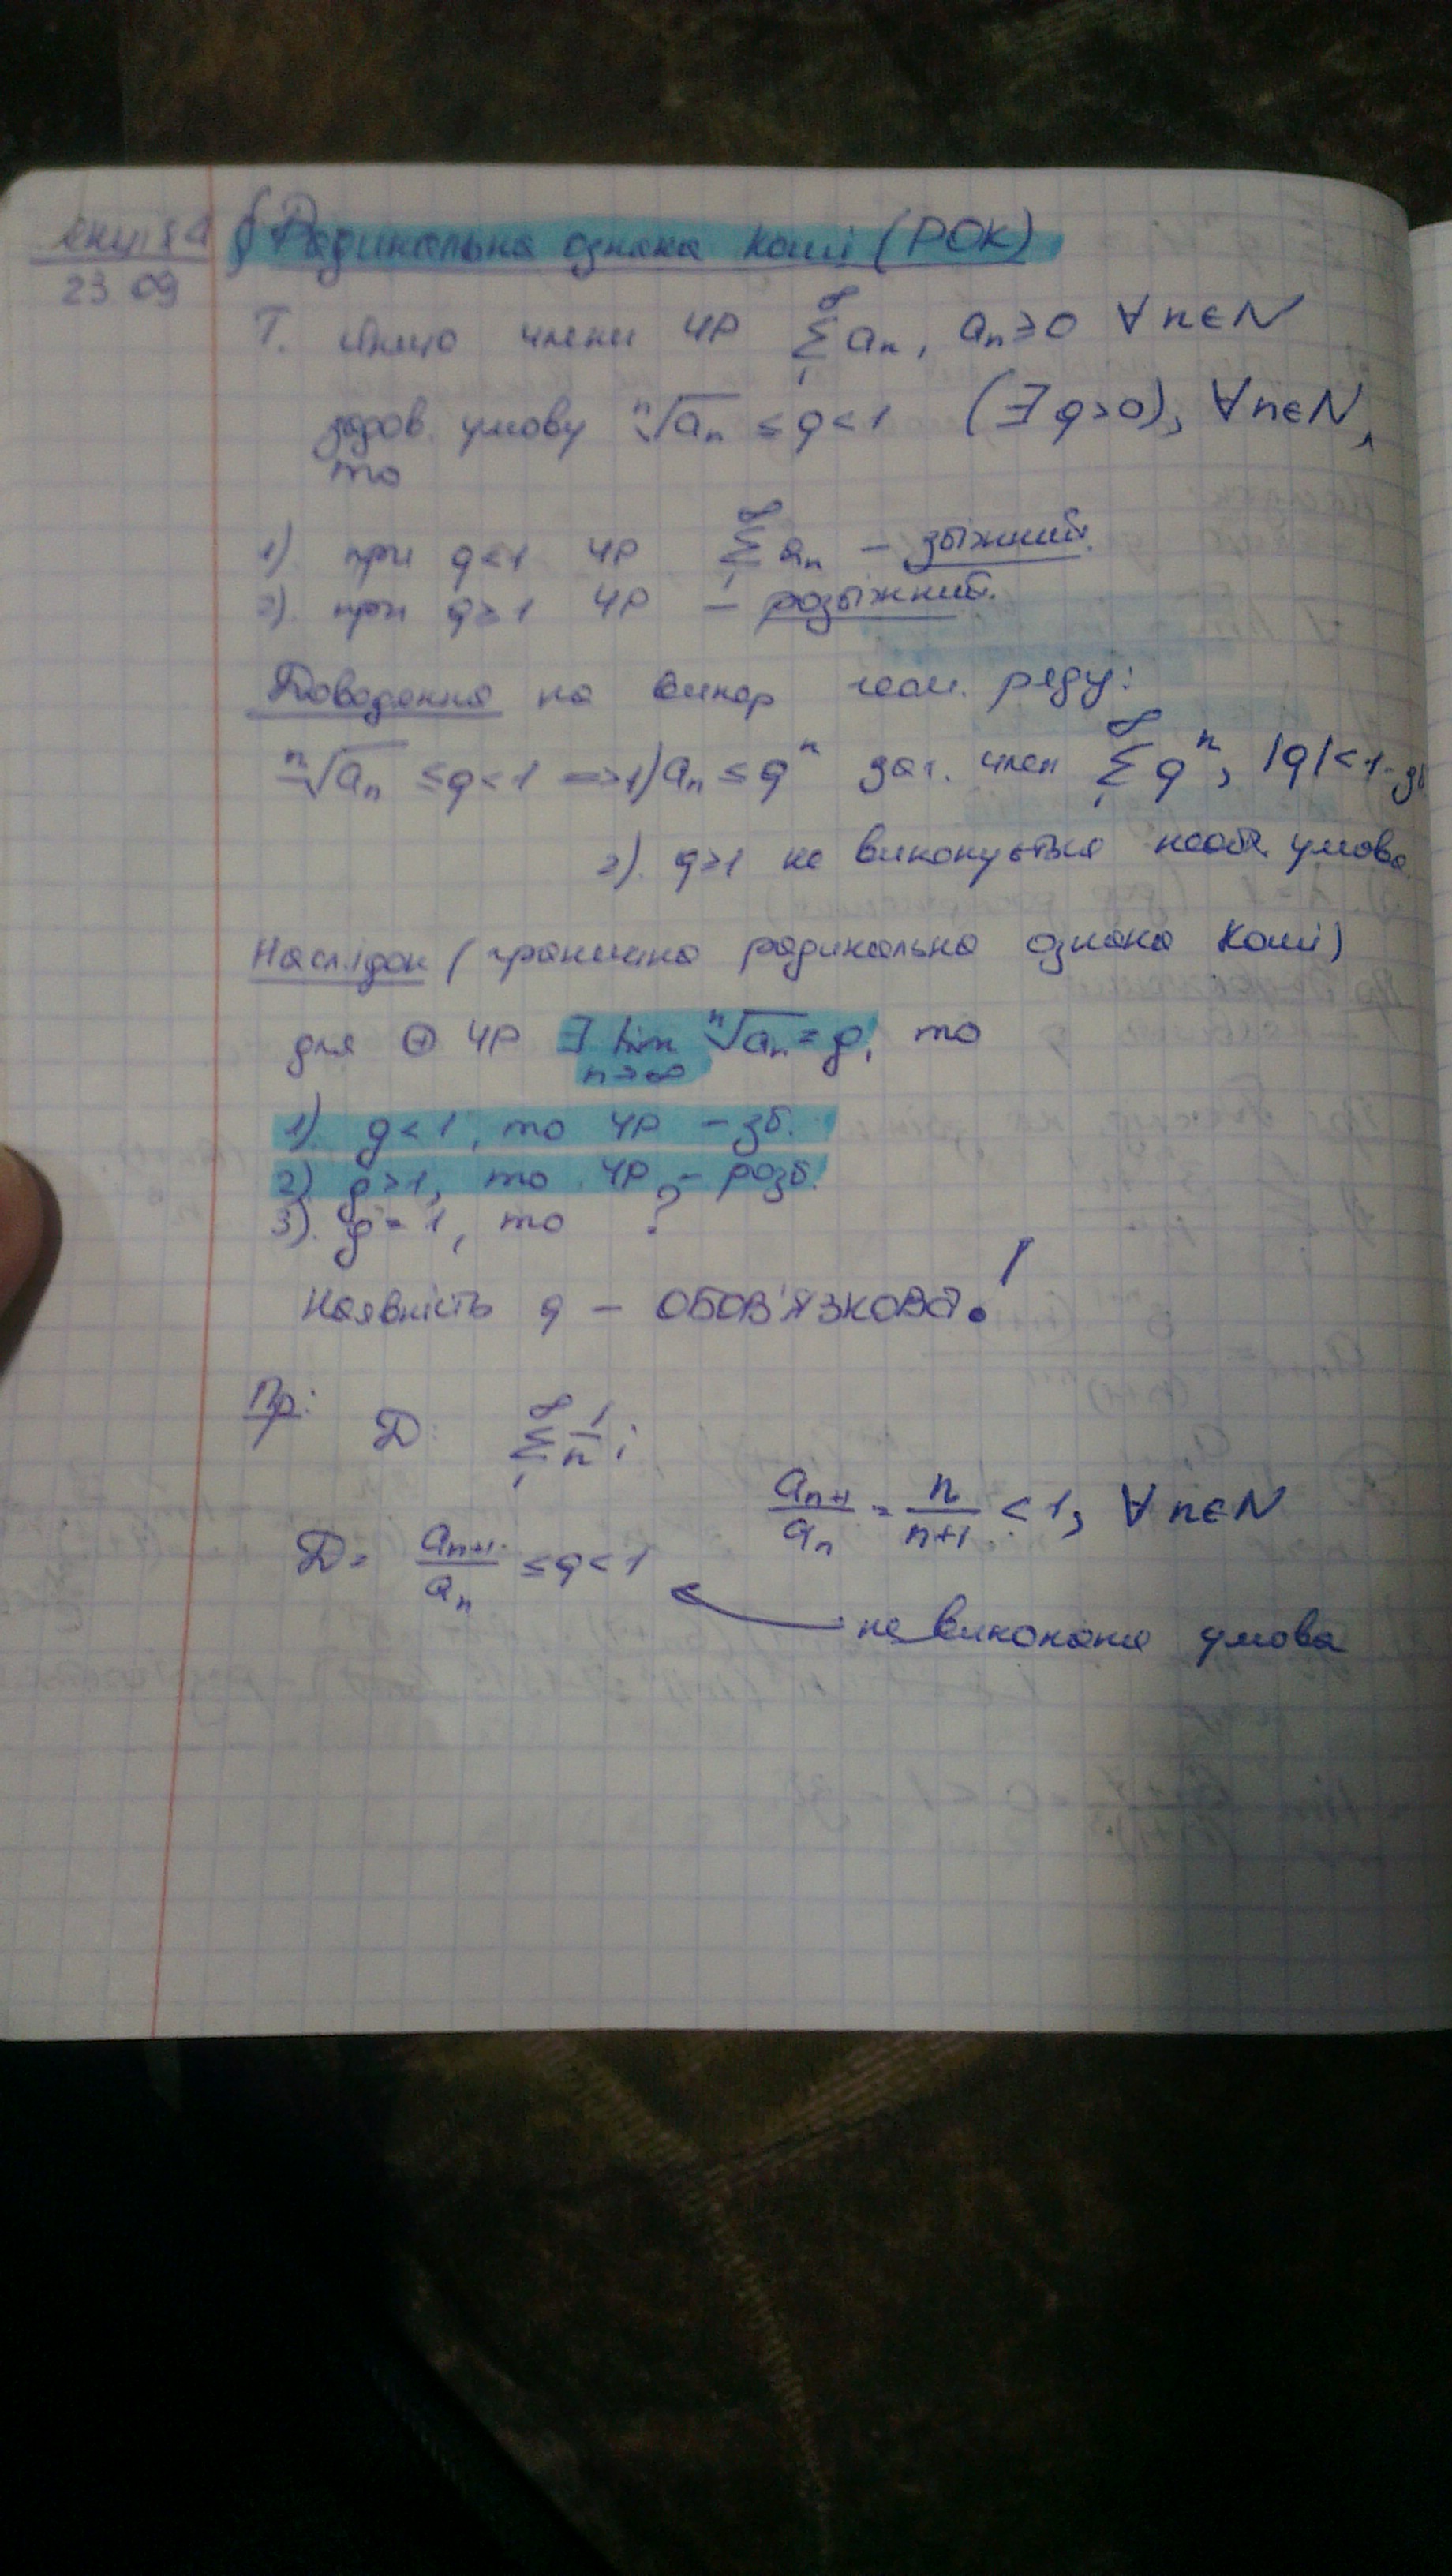 Лекція 4
23.09
§ Радикальна ознака Коші (РОК)
Т. Якщо члени ЧР ∞ Σ 1 aₙ, aₙ ≥ 0 ∀ n ∈ N
задов. умову ⁿ√aₙ ≤ q < 1 (∃ q > 0), ∀ n ∈ N,
то
1). при q < 1 ЧР ∞ Σ 1 aₙ – збіжний.
2). при q > 1 ЧР – розбіжний.
Доведення на викор геом. ряду:
ⁿ√aₙ ≤ q < 1 => 1) aₙ ≤ qⁿ заг. член ∞ Σ 1 qⁿ, |q| < 1 - зб
2). q > 1 не виконується необх. умова.
Наслідок (гранична радикальна ознака Коші)
для ⊕ ЧР ∃ lim n→∞ ⁿ√aₙ = q, то
1). q < 1, то ЧР – зб.
2) q > 1, то ЧР – розб.
3). q = 1, то ?
Наявність q – ОБОВ'ЯЗКОВА!
Пр:
D: ∞ Σ 1 1/n ;
aₙ₊₁/aₙ = n/n+1 < 1, ∀ n ∈ N
D = aₙ₊₁/aₙ ≤ q < 1
не виконана умова